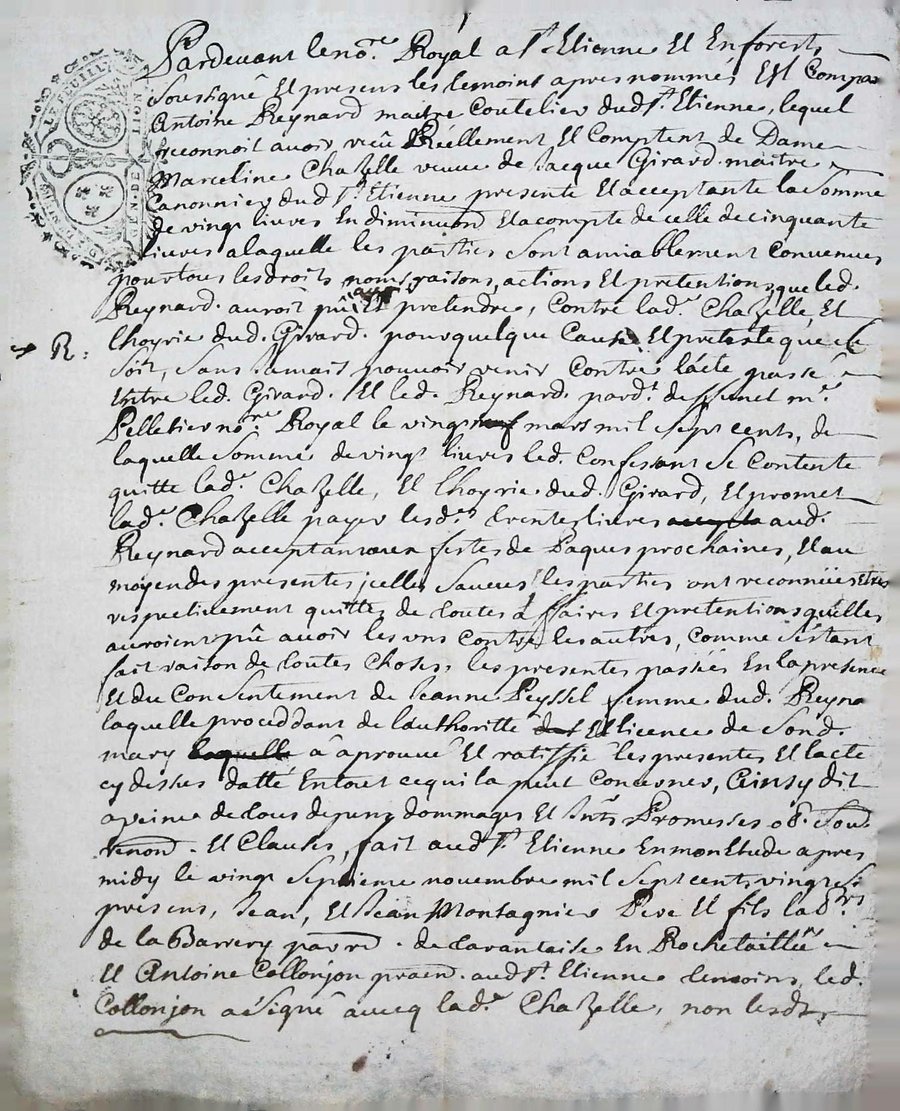 Pardevant le no.re Royal a St. Etienne Et En forests
Soussigné Et presens les temoins apres nommés Est Compar
Antoine Reynard maitre Coutelier dud St. Etienne, lequel
reconnoit avoir reçu Réellement Et Comptent de Dame
Marceline Chazelle veuve de Jacque Girard maitre
Canonnier dud St. Etienne presente Et acceptante la Somme
de vingt livres En diminuon Et a compte de celle de cinquante
livres a laquelle les parties Sont amiablement Convenues
pour tous les droits noms raisons, actions Et pretentions que led.
Reynard auroit pû Et pretendre, Contre lad.e Chazelle, Et
R: lhoyrie dud. Girard pour quelque Cause Et pretexte que ce
Soit, Sans Jamais pouvoir venir Contre l'acte passé
Entre led. Girard. Et led. Reynard pard.t me.
Pelletier no.re Royal le vingt neuf mars mil Sept cents, de
laquelle Somme de vingt livres led. Confessant Se Contente
quitte lad.e Chazelle, Et lhoyrie dud. Girard, Et promet
lad.e Chazelle payer les d.es trente livres aud.
Reynard acceptant aux festes de Paques prochaines, Et au
moyen des presentes icelles Sauves les parties ont reconnües Etres
respectivement quittes de toutes affaires Et pretentions qu'elles
auroient pû avoir les uns Contre les autres, Comme S'etant
fait raison de toutes Choses, les presentes passées En la presence
Et du Consentement de Jeanne Peyssel femme dud. Reyna
laquelle proceddant de l'authoritté Et licence de Sond.
mary laquelle a aprouvé Et ratiffié les presentes Et lacte
cy dessus datté En tout ce qui la peut Concerner, Ainsy dit
a peine de tous depens dommages Et Ints. Promesses ob. Sou
renon. Et Clauses, fait aud St. Etienne En mon Etude apres
midy le vingt Septieme novembre mil Sept cents vingt
presens, Jean, Et Jean Montagnier Pere Et fils lab.rs
de la Barrery parre. de tarantaise En Rochetaillée
Et Antoine Collonjon praen. aud St. Etienne temoins, led.
Collonjon a Signé avecq lad.e Chazelle, non lesd